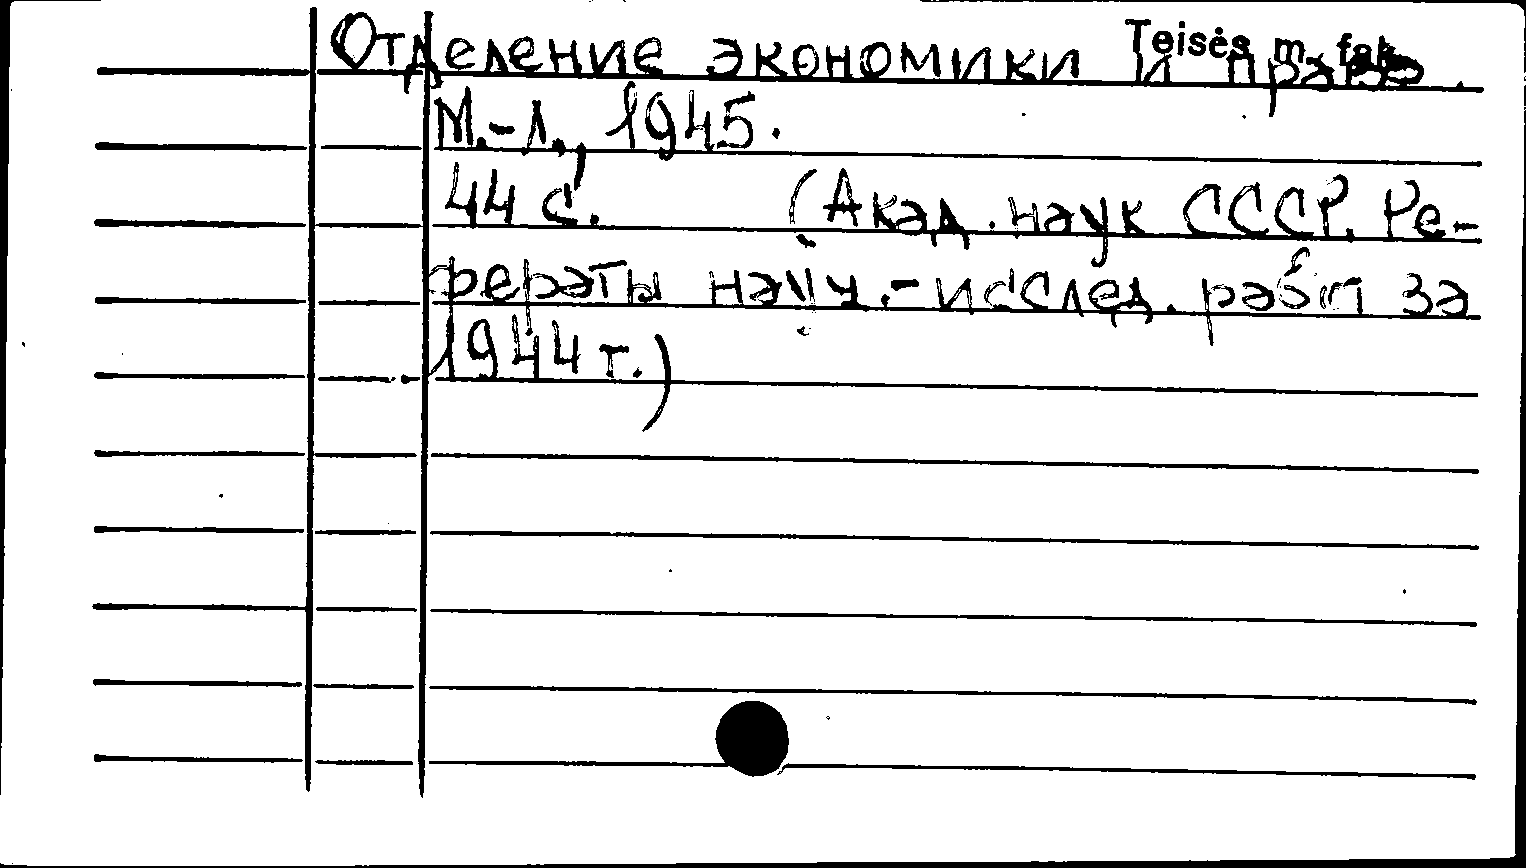 Teisės m. fak.
Отделение экономики и права.
М.-Л., 1945.
44 с. (Акад. наук СССР. Ре-
фераты науч.-исслед. работ за
1944 г.)